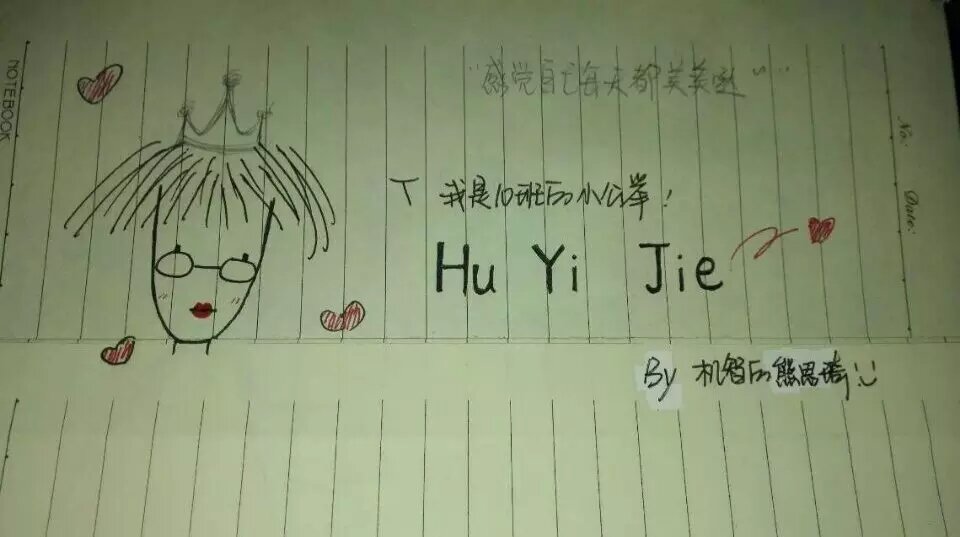 NOTEBOOK
No:
Date:
"感觉自己每天都美美哒~"
我是10班的小公举!
Hu Yi Jie
By 机智的熊思琦